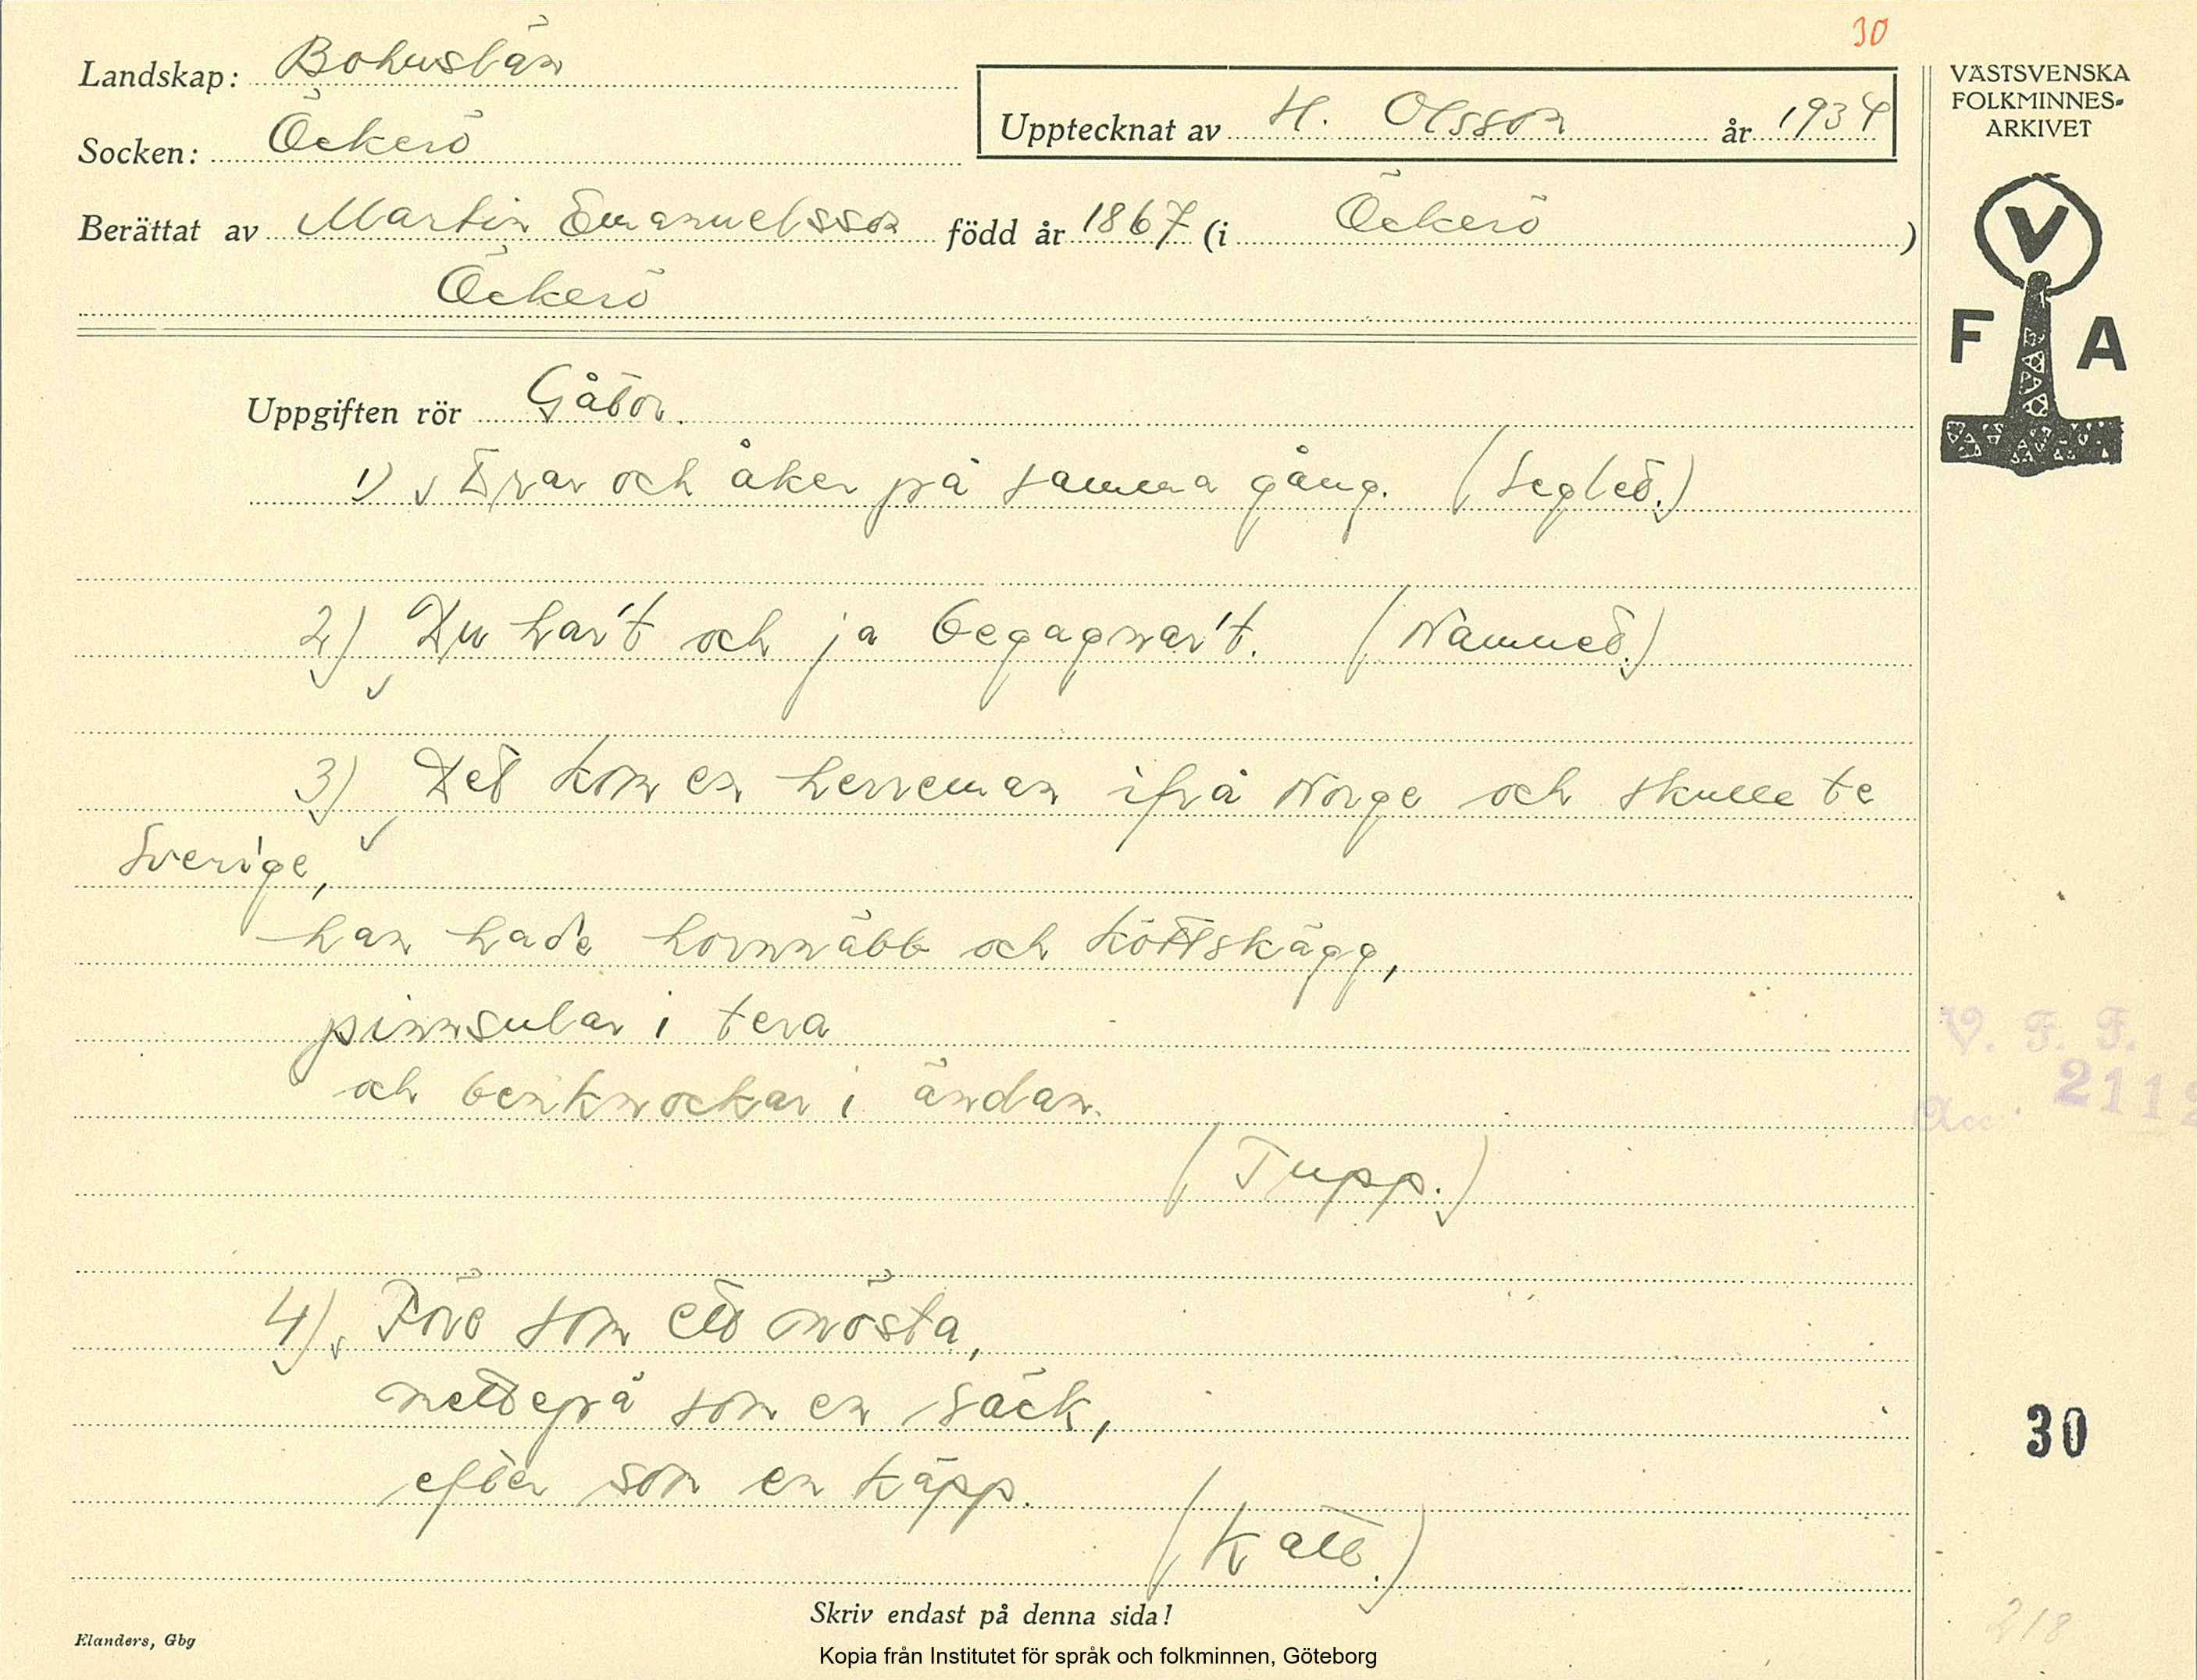 30
Landskap: Bohuslän
Socken: Öckerö
Upptecknat av H. Olsson år 1934
VÄSTSVENSKA
FOLKMINNES-
ARKIVET
Berättat av Martin Emanuelsson född år 1867 (i Öckerö)
Öckerö
V
F A
Uppgiften rör Gåtor.
1) Drar och åker på samma gång. (Seglet.)
2) Du har't och ja begagnar't. (Namnet.)
3) Det kom en herreman ifrå Norge och skulle te
Sverige,
han hade hornnäbb och köttskägg,
pinnsular i tera
och benknockar i ändan.
(Tupp.)
V. F. F.
Acc. 2112
4) Före som ett nösta,
nettepå som en säck,
efter som en käpp.
(Katt.)
30
Skriv endast på denna sida!
218
Elanders, Gbg
Kopia från Institutet för språk och folkminnen, Göteborg